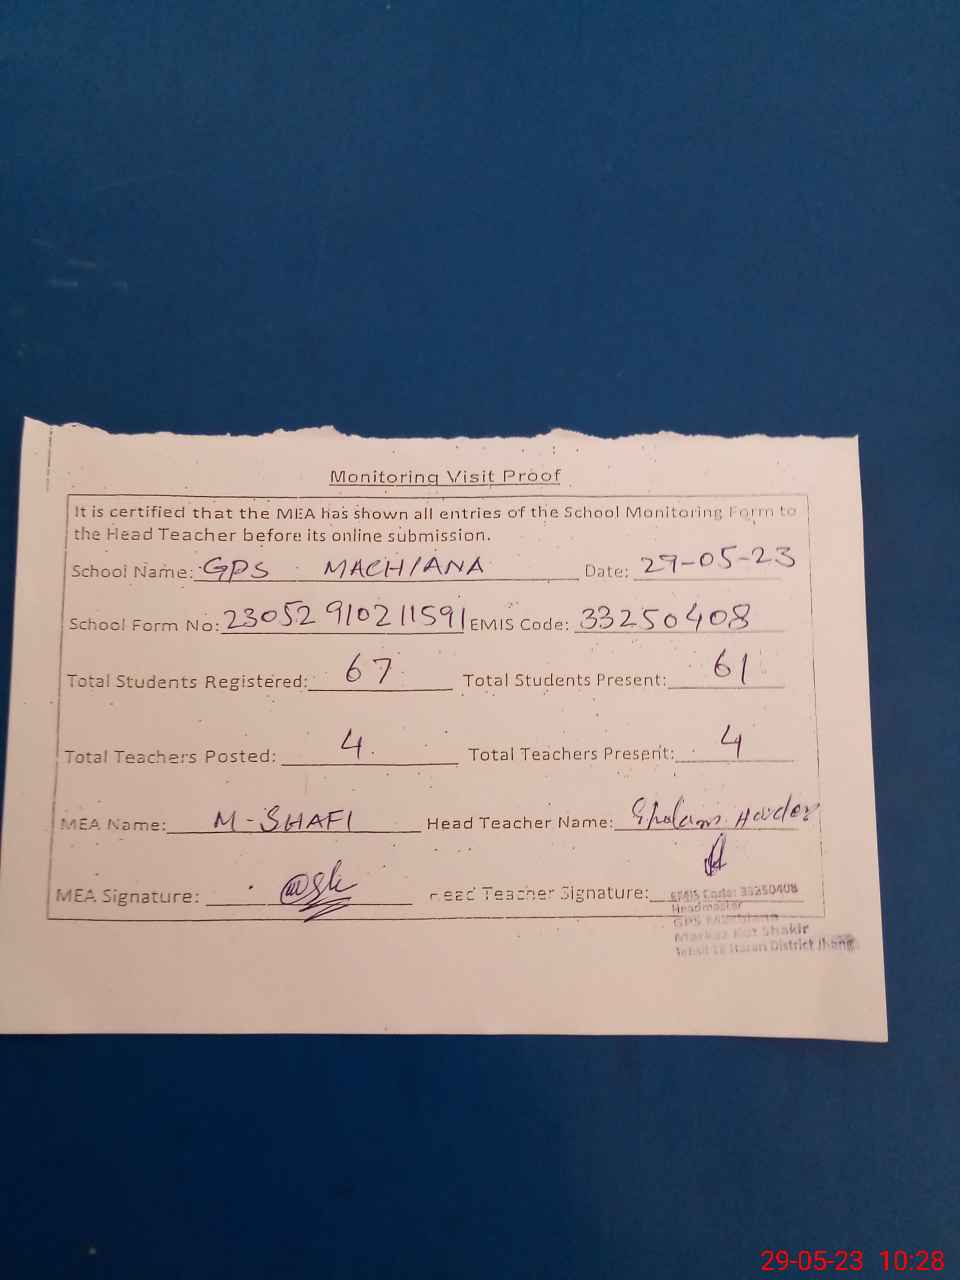 Monitoring Visit Proof
It is certified that the MEA has shown all entries of the School Monitoring Form to
the Head Teacher before its online submission.
School Name: GPS MACHIANA Date: 29-05-23
School Form No: 230529102 11591 EMIS Code: 33250408
Total Students Registered: 67 Total Students Present: 61
Total Teachers Posted: 4 Total Teachers Present: 4
MEA Name: M-SHAFI Head Teacher Name: Gholam Haider
MEA Signature: Head Teacher Signature:
EMIS Code: 33250408
Headmaster
GPS Machiana
Markaz Kot Shakir
Tehsil District Jhang
29-05-23 10:28